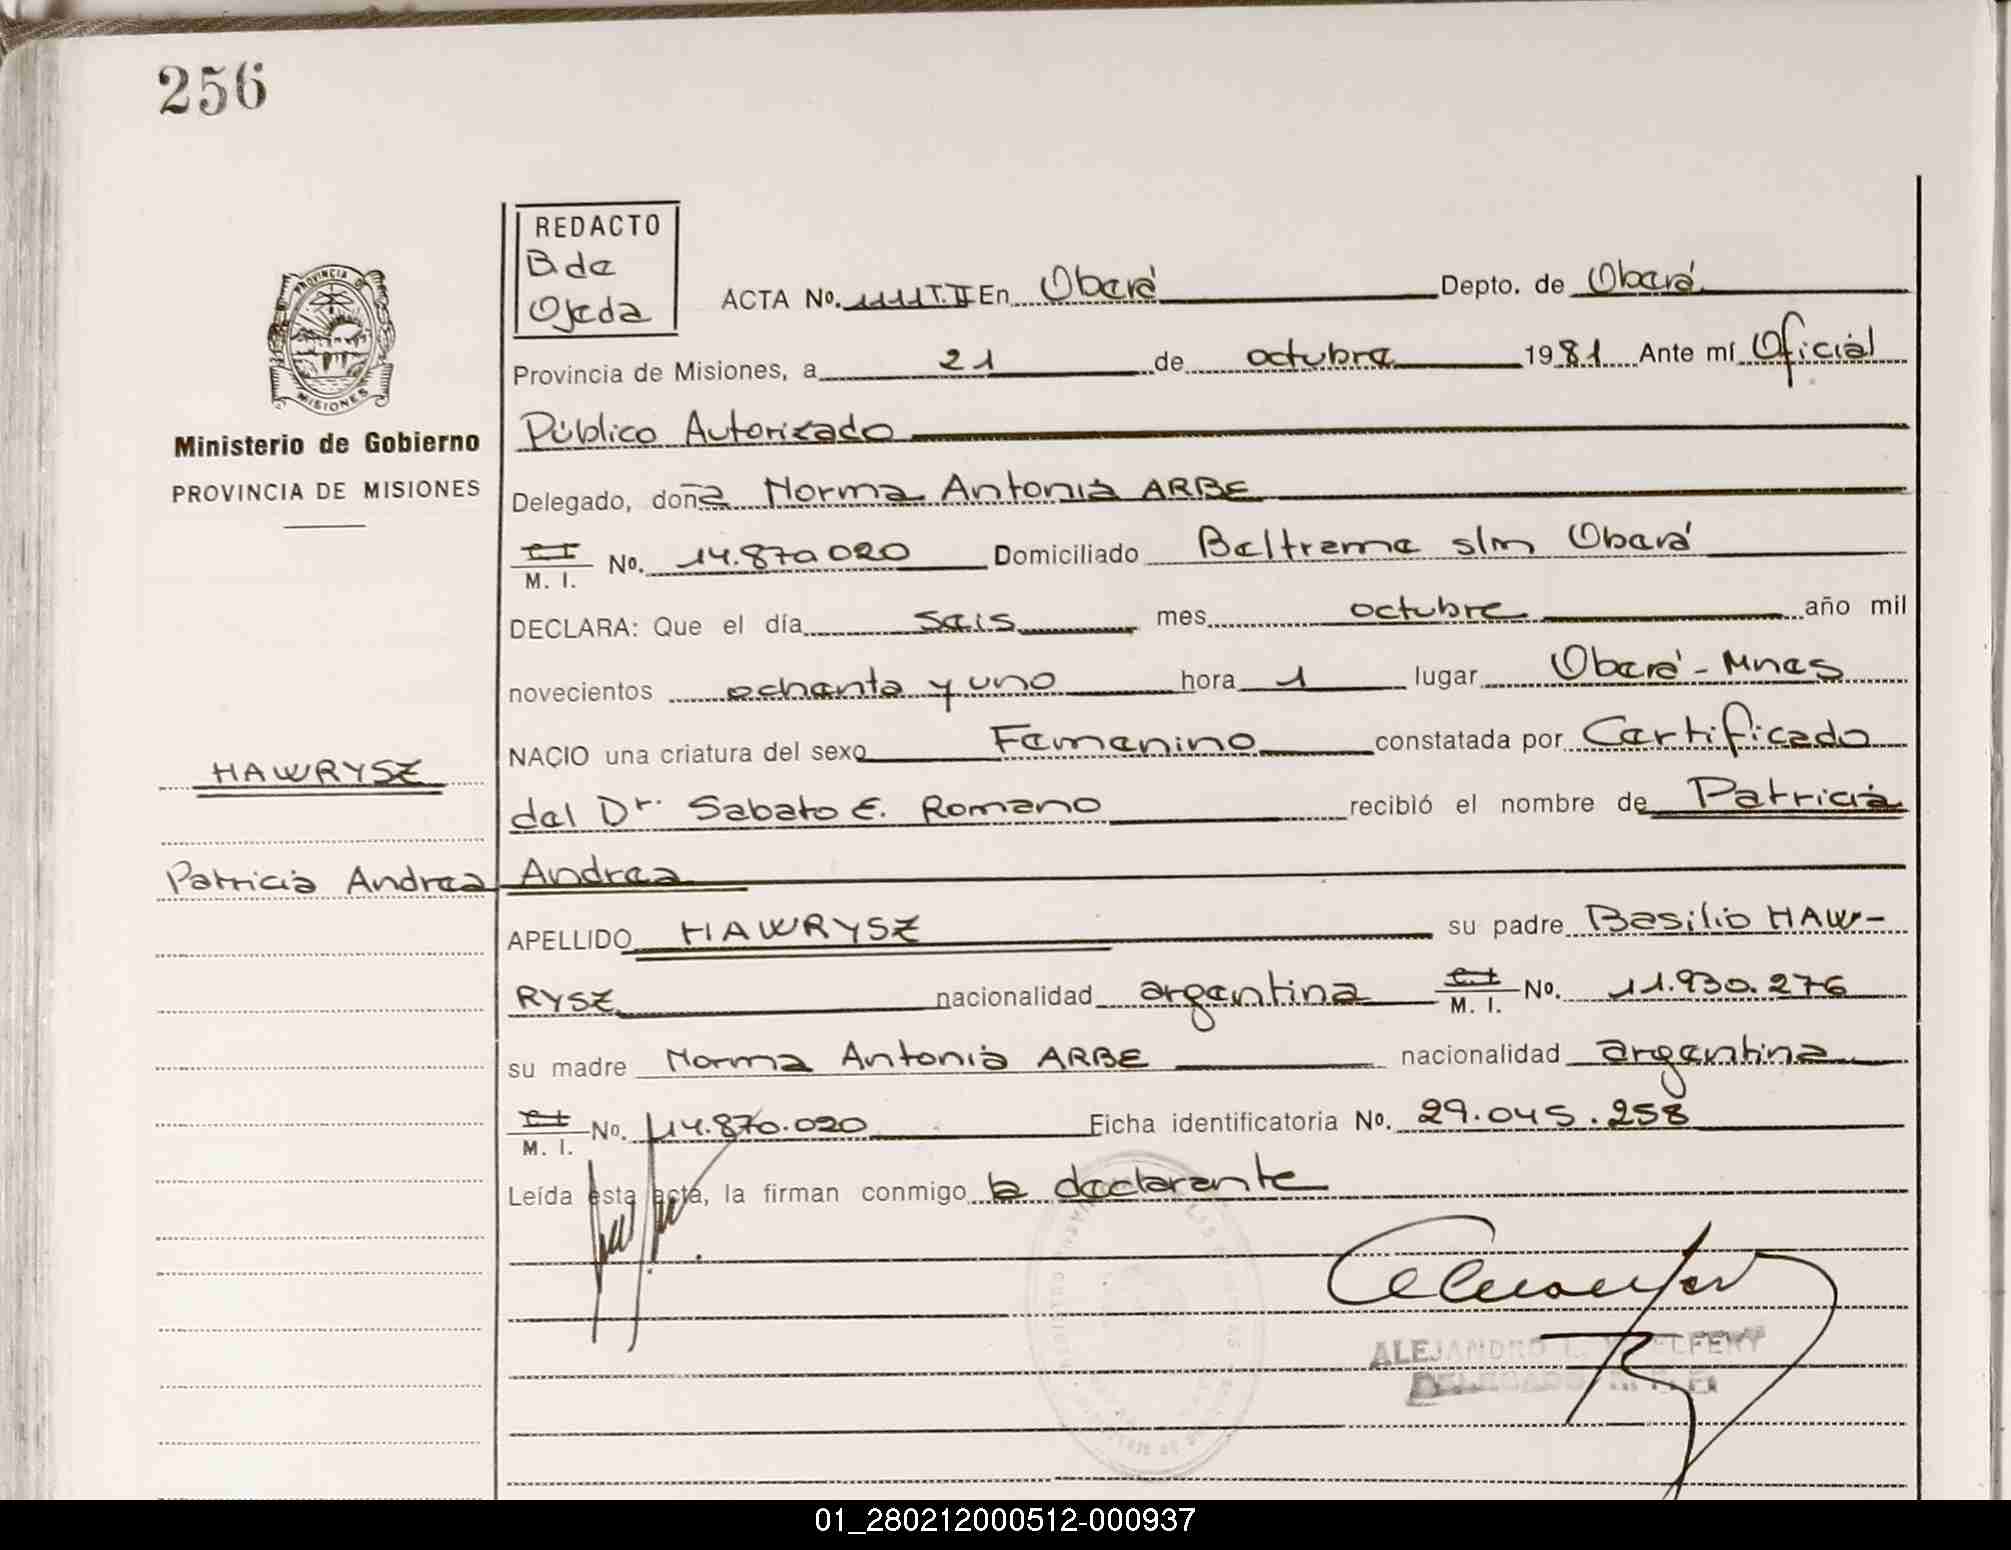 256
REDACTO
B. de
Ojeda
ACTA No. 1111 T.II En Oberá Depto. de Oberá
Provincia de Misiones, a 21 de octubre 1981 Ante mí Oficial
Público Autorizado
Ministerio de Gobierno
PROVINCIA DE MISIONES
Delegado, doña Norma Antonia ARBE
C. I.
M. I. No. 14.870.020 Domiciliado Beltrame s/n Oberá
DECLARA: Que el día seis mes octubre año mil
novecientos ochenta y uno hora 1 lugar Oberá - Mnes
NACIO una criatura del sexo Femenino constatada por Certificado
HAWRYSZ
del Dr. Sabato E. Romano recibió el nombre de Patricia
Patricia Andrea
Andrea
APELLIDO HAWRYSZ su padre Basilio HAW-
RYSZ nacionalidad argentina C. I. M. I. No. 11.930.276
su madre Norma Antonia ARBE nacionalidad argentina
C. I.
M. I. No. 14.870.020 Ficha identificatoria No. 29.045.258
Leída esta acta, la firman conmigo la declarante
ALEJANDRO
DELEGADO
01_280212000512-000937